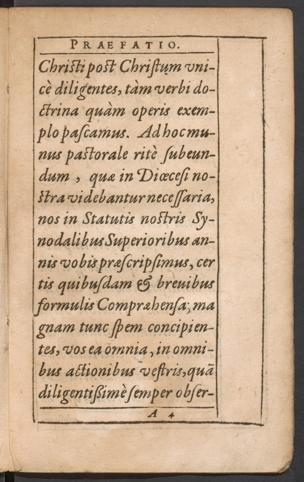 PRAEFATIO.
Chriſti poſt Chriſtum vni-
cè diligentes, tàm verbi do-
ctrina quàm operis exem-
plo paſcamus. Ad hoc mu-
nus paſtorale ritè ſubeun-
dum, quæ in Diœceſi no-
ſtra videbantur neceſſaria,
nos in Statutis noſtris Sy-
nodalibus Superioribus an-
nis vobis præſcripſimus, cer
tis quibuſdam & breuibus
formulis Compræhenſa; ma
gnam tunc ſpem concipien-
tes, vos ea omnia, in omni-
bus actionibus veſtris, quā
diligentißimè ſemper obſer-
A 4